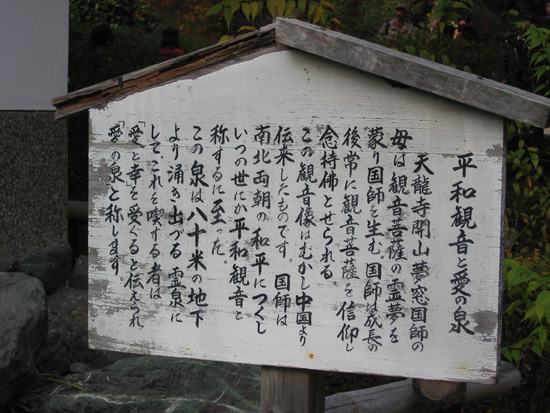 平和観音と愛の泉
天龍寺開山夢窓国師の
母は観音菩薩の霊夢を
蒙り国師を生む。国師は成長の
後常に観音菩薩を信仰し
念持佛とせられる。
この観音像はむかし中国より
伝来したものです。国師は
南北両朝の和平につくし
いつの世にか平和観音と
称するに至った。
この泉は八十米の地下
より涌き出づる霊泉に
してこれを喫する者は
「愛と幸」を受くると伝えられ
「愛の泉」と称します。